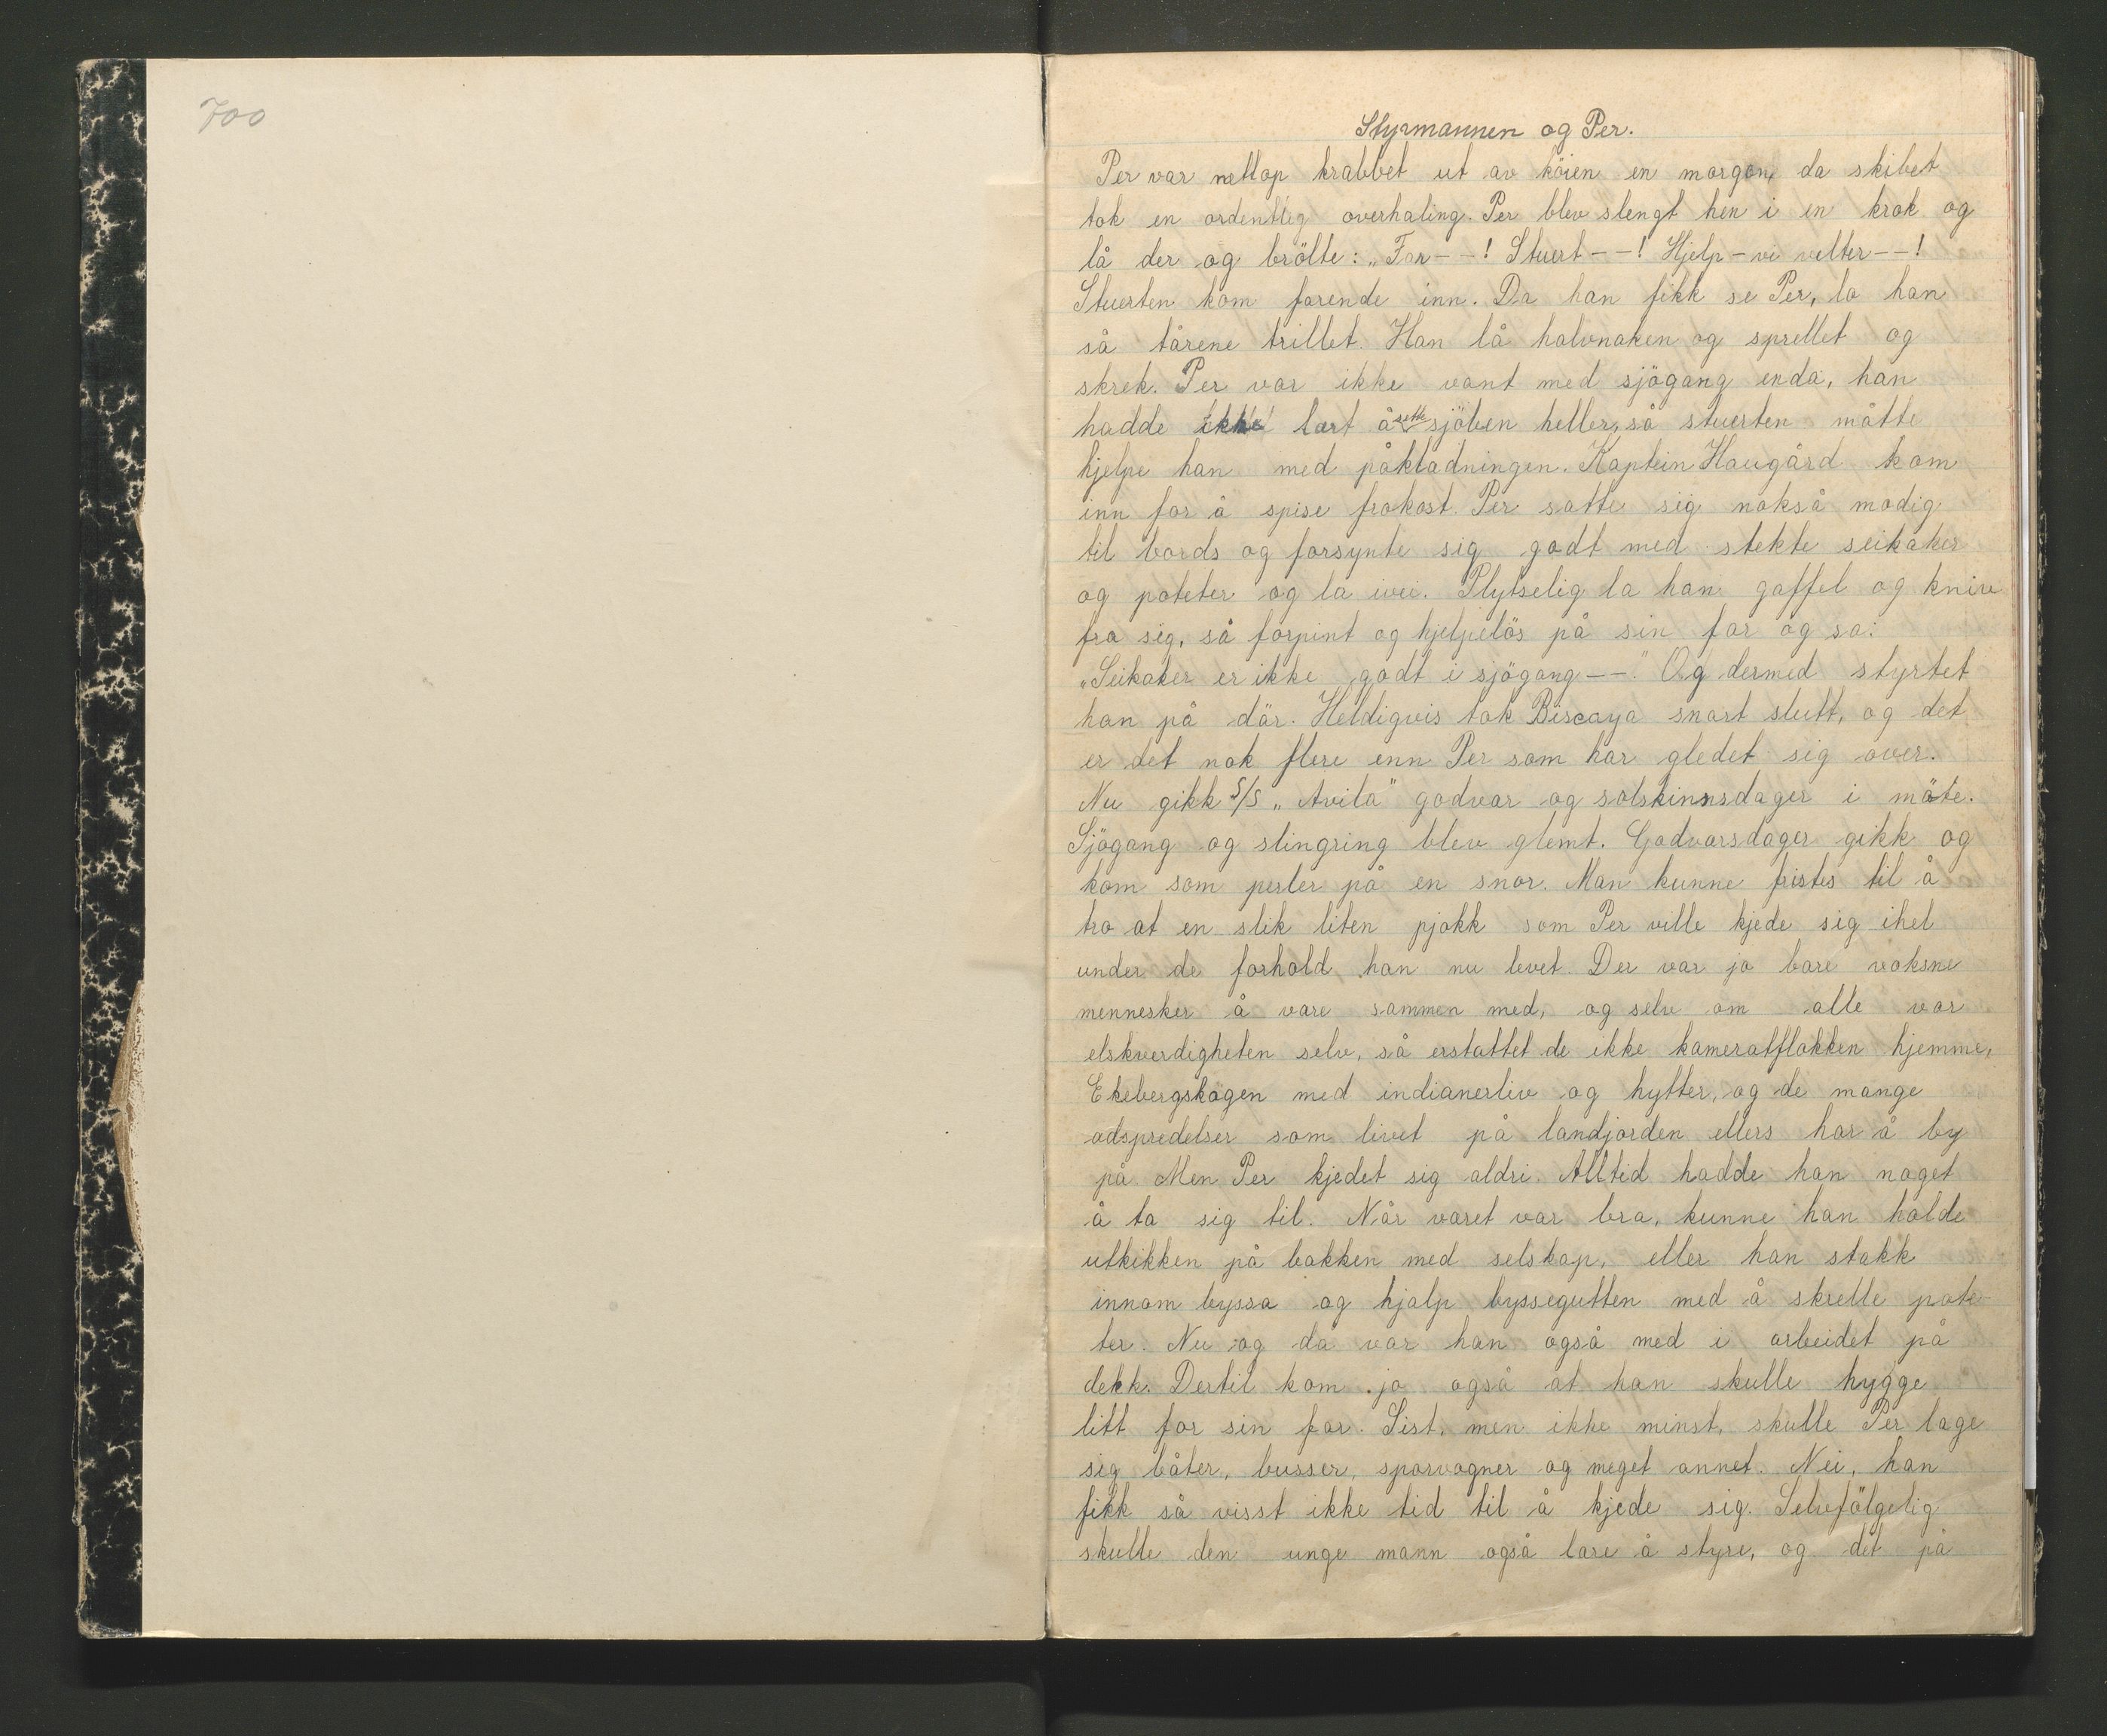 700
Styrmannen og Per.
Per var nettop krabbet ut av köien en morgen, da skibet
tok en ordentlig overhaling. Per blev slengt hen i en krok og
lå der og brölte: „Far--! Stuert--! Hjelp-vi velter--!
Stuerten kom farende inn. Da han fikk se Per, lo han
så tårene trillet. Han lå halvnaken og sprellet og
skrek. Per var ikke vant med sjögang enda, han
hadde ikke lært å sette sjöben heller, så stuerten måtte
hjelpe han med påkledningen. Kaptein Haugård kom
inn for å spise frokost. Per satte sig nokså modig
til bords og forsynte sig godt med stekte seikaker
og poteter og la ivei. Plytselig la han gaffel og kniv
fra sig, så forpint og hjelpelös på sin far og sa:
„Seikaker er ikke godt i sjögang--." Og dermed styrtet
han på dör. Heldigvis tok Biscaya snart slutt, og det
er det nok flere enn Per som har gledet sig over.
Nu gikk S/S „Avila" godvær og solskinnsdager i møte.
Sjögang og slingring blev glemt. Godværsdager gikk og
kom som perler på en snor. Man kunne fristes til å
tro at en slik liten pjokk som Per ville kjede sig ihel
under de forhold han nu levet. Der var jo bare voksne
mennesker å være sammen med, og selv om alle var
elskverdigheten selv, så erstattet de ikke kameratflokken hjemme,
Ekebergskogen med indianerliv og hytter, og de mange
adspredelser som livet på landjorden ellers har å by
på. Men Per kjedet sig aldri. Alltid hadde han noget
å ta sig til. Når været var bra, kunne han holde
utkikken på bakken med selskap, eller han stakk
innom byssa og hjalp byssegutten med å skrelle pote-
ter. Nu og da var han også med i arbeidet på
dekk. Dertil kom jo også at han skulle hygge
litt for sin far. Sist, men ikke minst, skulle Per lage
sig båter, busser, sporvogner og meget annet. Nei, han
fikk så visst ikke tid til å kjede sig. Selvfölgelig
skulle den unge mann også lære å styre, og det på